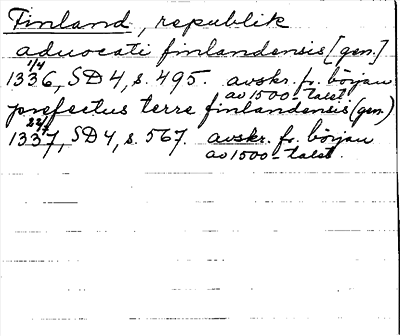 Finland, republik
aduocati finlandensis [gen.]
1/4
1336, SD 4, s. 495. avskr. fr. början
av 1500-talet
prefectus terre finlandensis (gen.)
22/7
1337, SD 4, s. 567. avskr. fr. början
av 1500-talet.